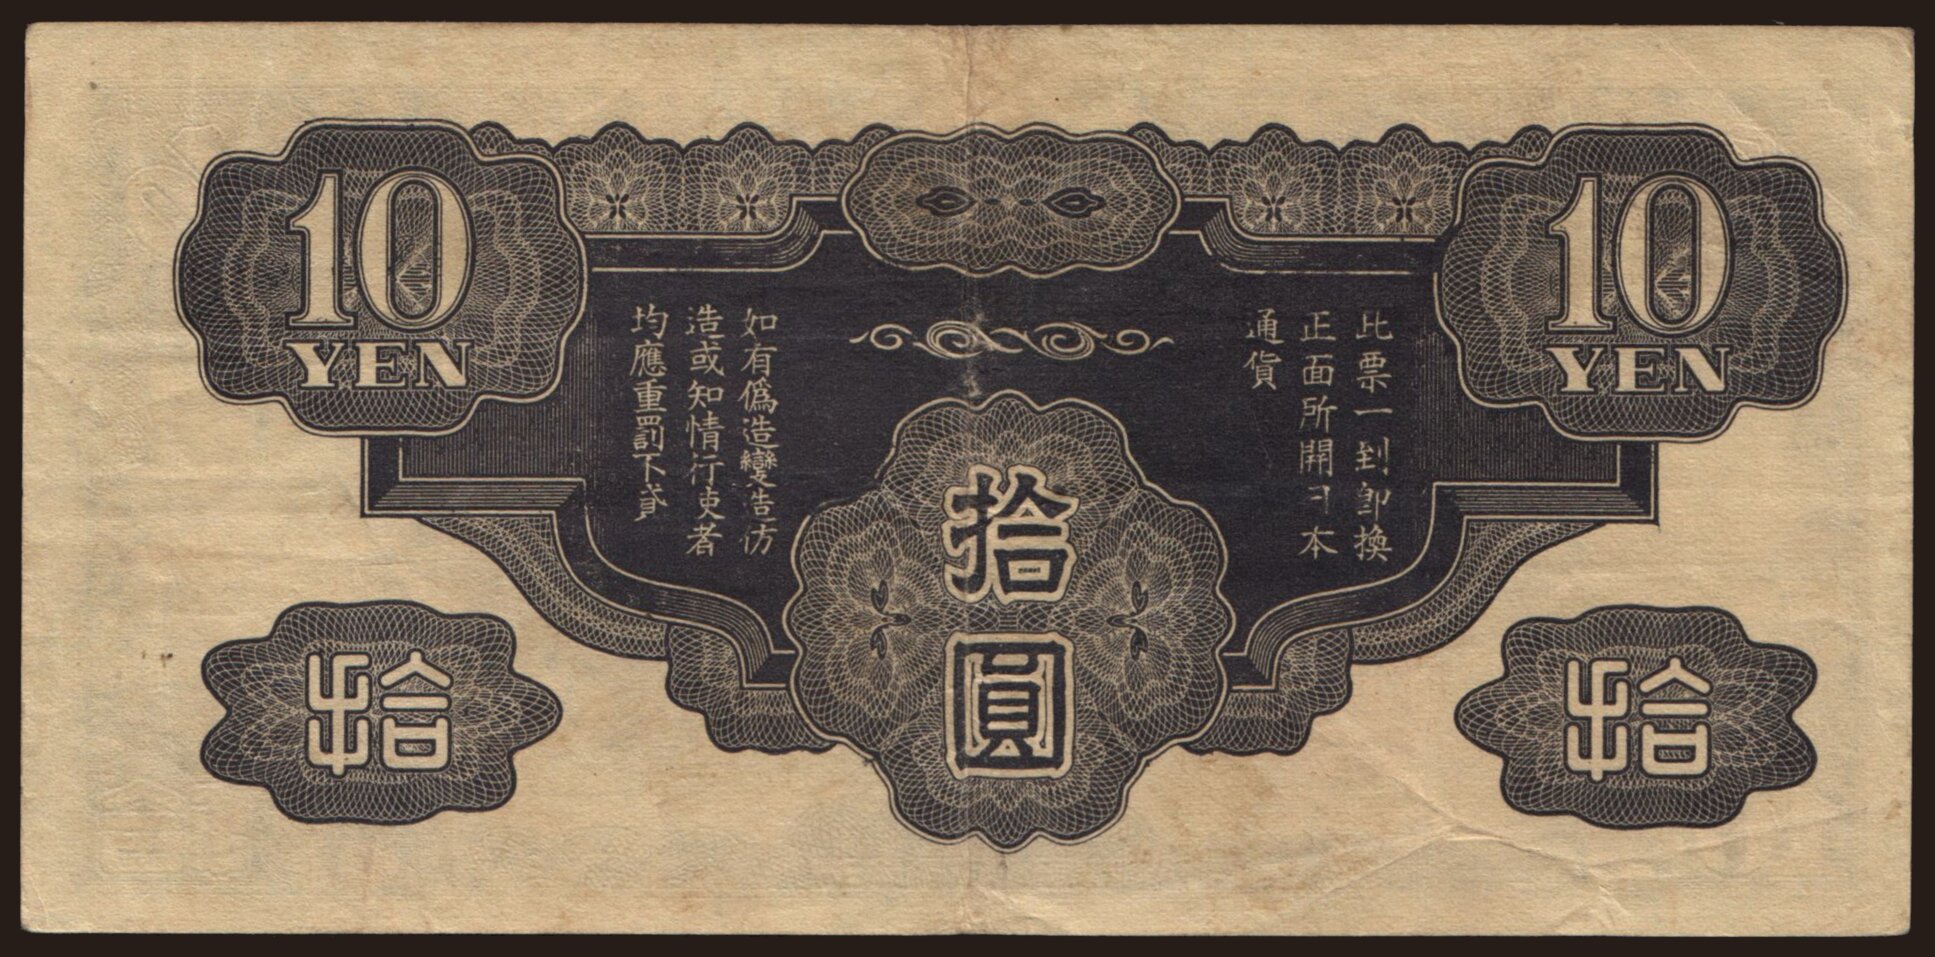 10
YEN
10
YEN
此票一到即換
正面所開ヨ本
通貨
如有僞造變造仿
造或知情行使者
均應重罰不貸
拾圓
拾
拾